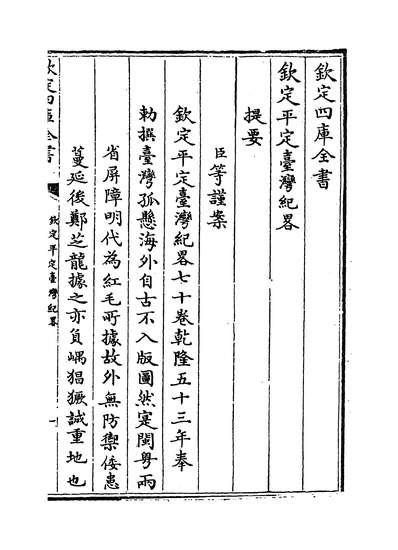 欽定四庫全書
欽定平定臺灣紀畧
提要
臣等謹案
欽定平定臺灣紀畧七十卷乾隆五十三年奉
勅撰臺灣孤懸海外自古不入版圖然寔閩粵兩
省屏障明代為紅毛所據故外無防禦倭患
蔓延後鄭芝龍據之亦負嵎猖獗誠重地也
欽定四庫全書
欽定平定臺灣紀畧
一